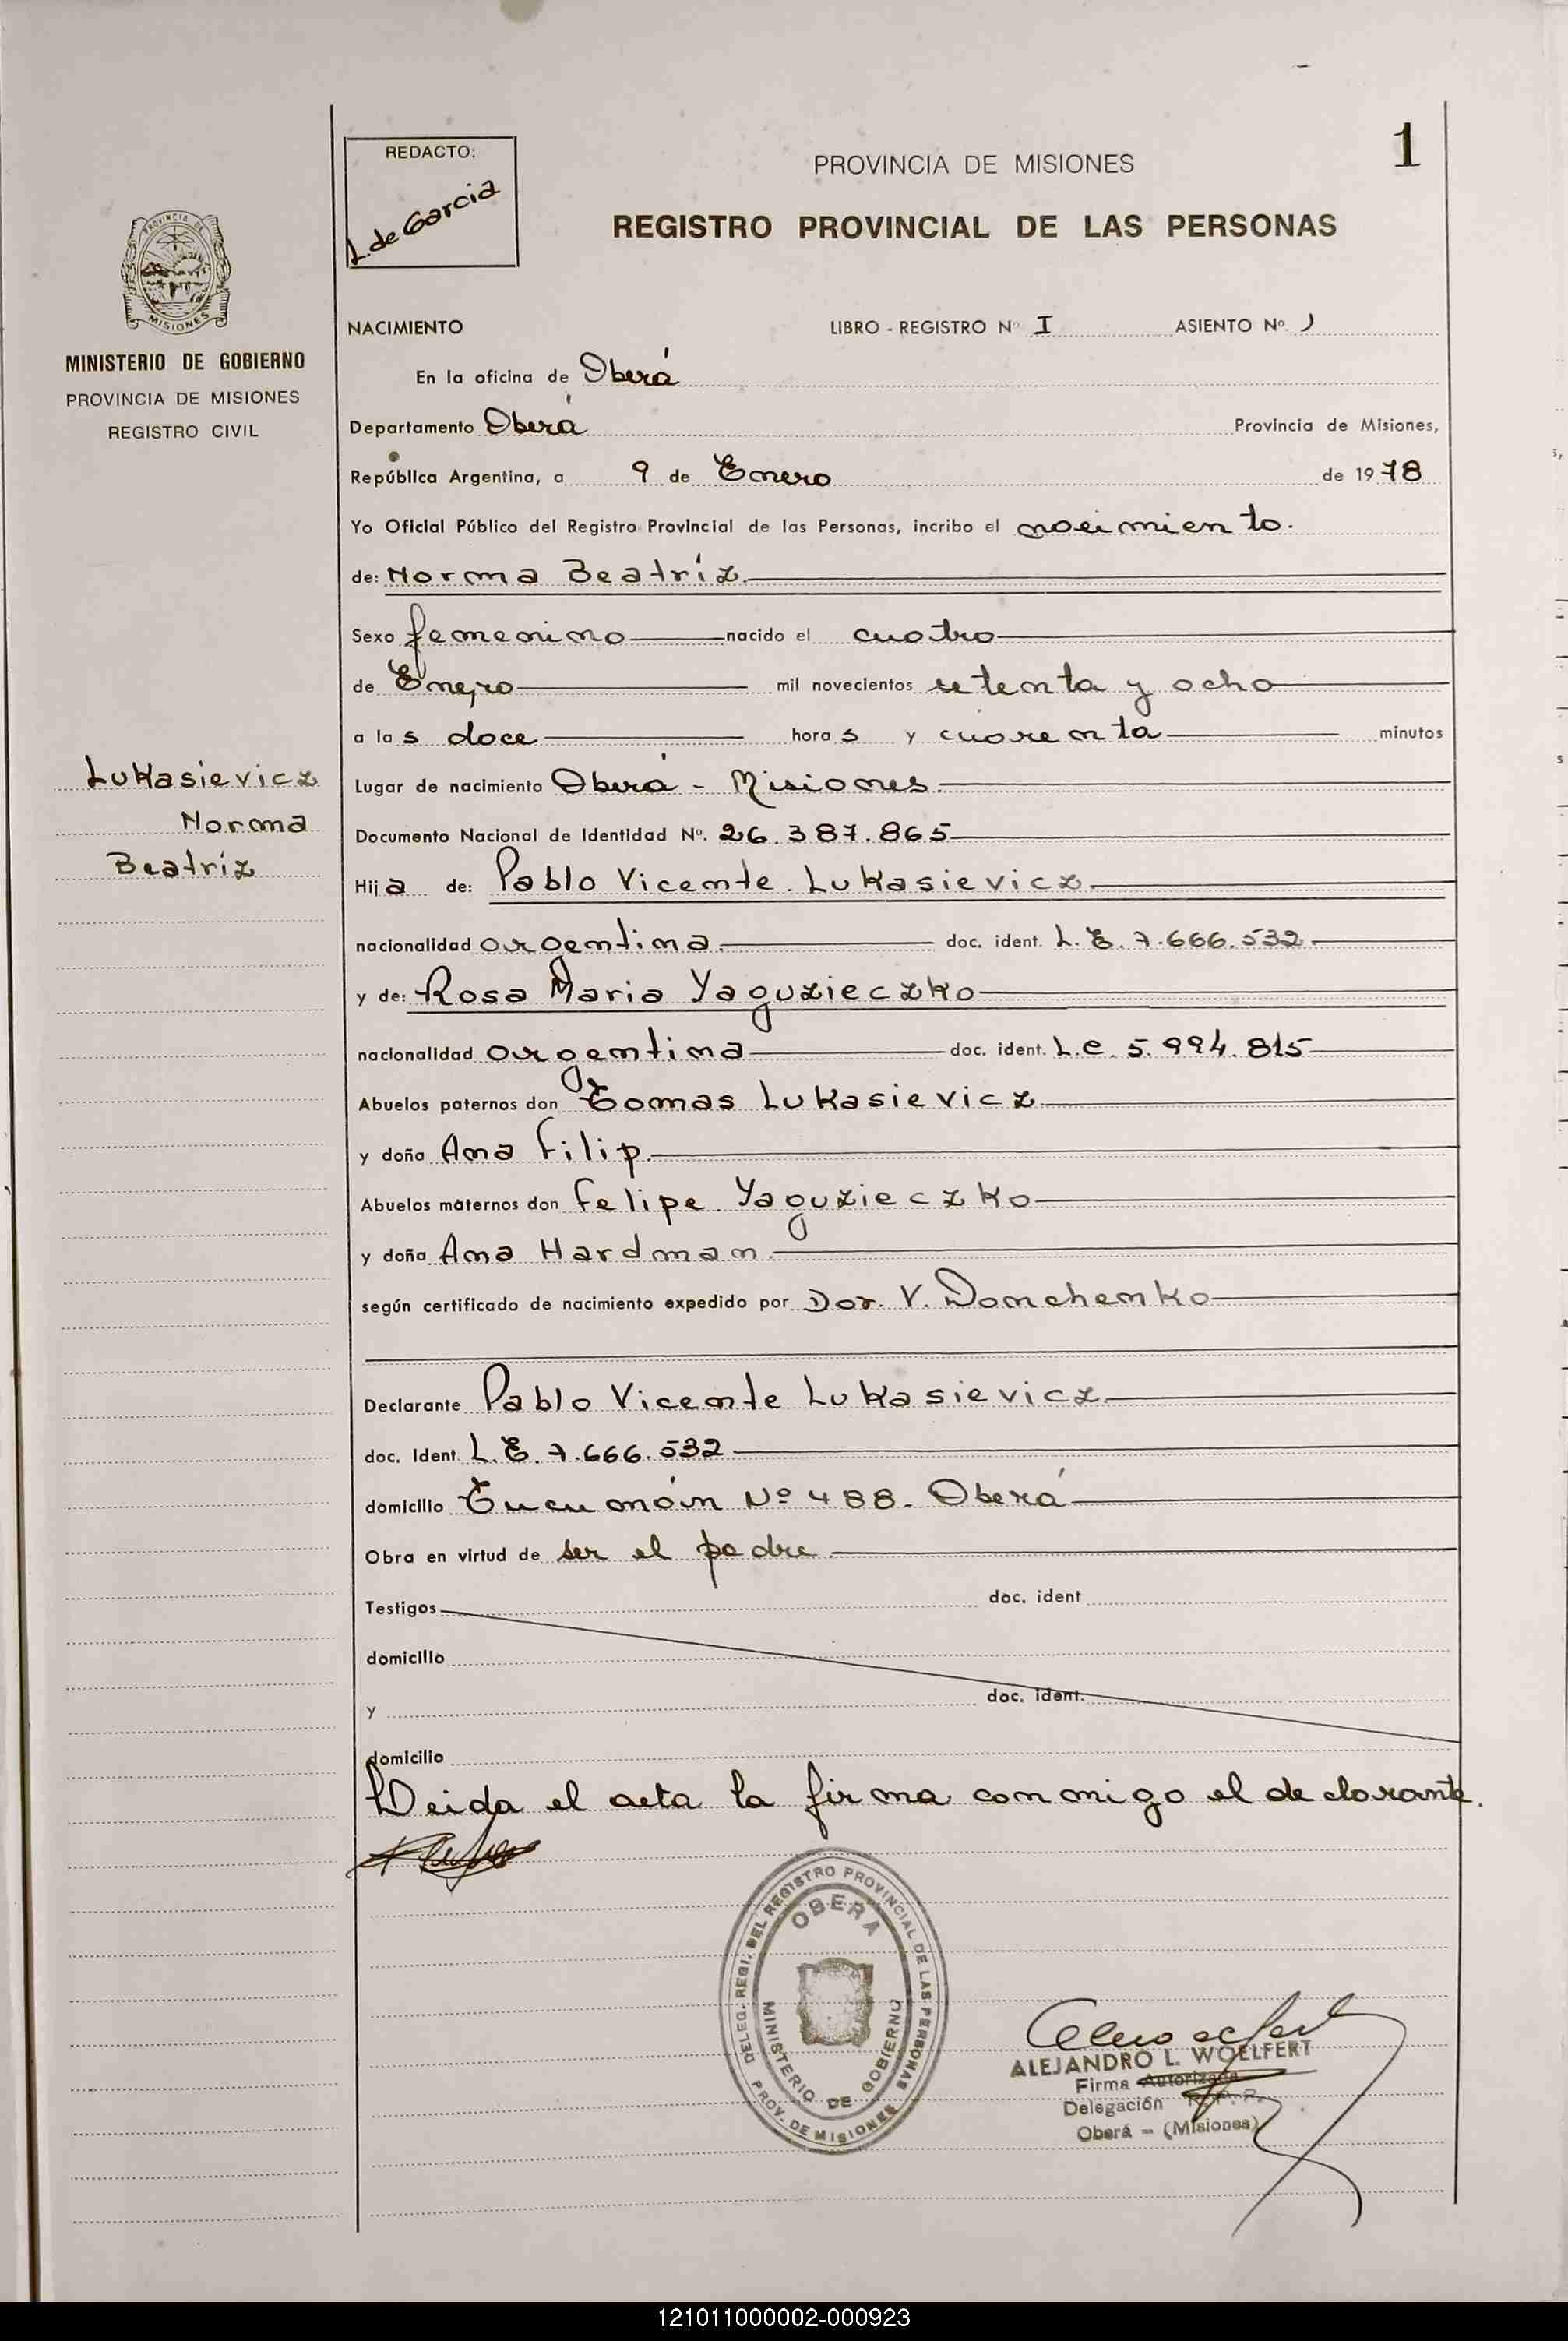 REDACTO:
L. de Garcia
PROVINCIA DE MISIONES
1
REGISTRO PROVINCIAL DE LAS PERSONAS
PROVINCIA DE
MISIONES
MINISTERIO DE GOBIERNO
PROVINCIA DE MISIONES
REGISTRO CIVIL
NACIMIENTO LIBRO - REGISTRO Nº I ASIENTO Nº 1
En la oficina de Oberá
Departamento Oberá Provincia de Misiones,
República Argentina, a 9 de Enero de 1978
Yo Oficial Público del Registro Provincial de las Personas, incribo el nacimiento.
de: Norma Beatríz
Sexo femenino nacido el cuatro
de Enero mil novecientos setenta y ocho
a las doce horas y cuarenta minutos
Lukasievicz
Norma
Beatríz
Lugar de nacimiento Oberá - Misiones.
Documento Nacional de Identidad Nº. 26.387.865
Hija de: Pablo Vicente Lukasievicz
nacionalidad argentina doc. ident. L.E. 7.666.532
y de: Rosa Maria Yaguzieczko
nacionalidad argentina doc. ident. L.C. 5.994.815
Abuelos paternos don Tomas Lukasievicz
y doña Ana Filip
Abuelos maternos don Felipe Yaguzieczko
y doña Ana Hardman
según certificado de nacimiento expedido por Dor. V. Donchenko
Declarante Pablo Vicente Lukasievicz
doc. Ident. L.E. 7.666.532
domicilio Tucumán Nº 488. Oberá
Obra en virtud de ser el padre
Testigos doc. ident
domicilio
y doc. ident.
domicilio
Leida el acta la firma conmigo el declarante.
DELEG. REGI. DEL REGISTRO PROVINCIAL DE LAS PERSONAS
OBERA
MINISTERIO DE GOBIERNO
PROV. DE MISIONES
ALEJANDRO L. WOELFERT
Firma Autorizada
Delegación R. P. P.
Oberá - (Misiones)
121011000002-000923